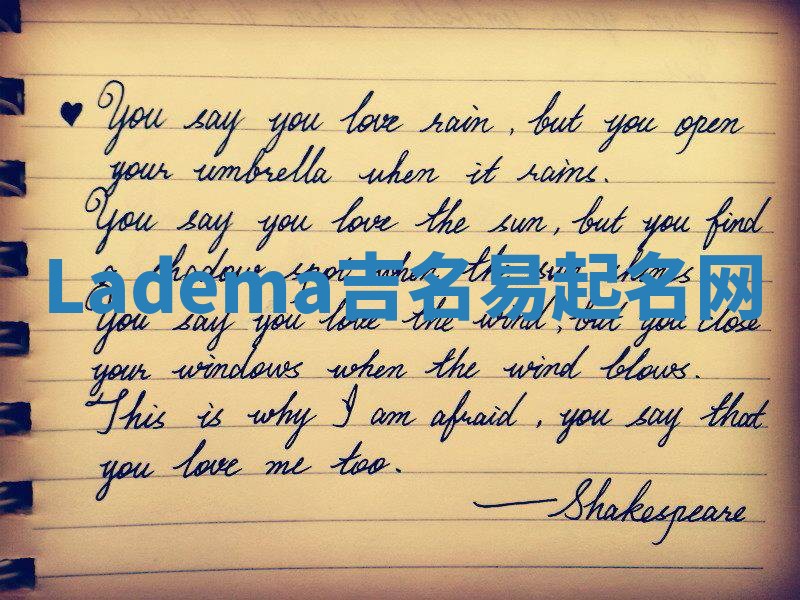 ♥ You say you love rain, but you open
your umbrella when it rains.
You say you love the sun, but you find
a shadow spot when the sun shines
Ladema吉名易起名网
You say you love the wind, but you close
your windows when the wind blows.
This is why I am afraid, you say that
you love me too.
—Shakespeare